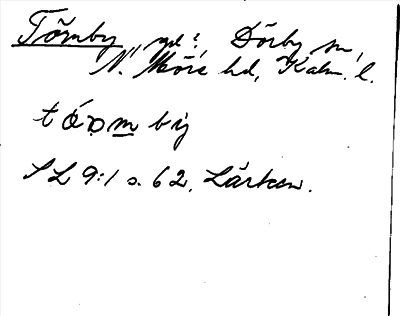 Törnby, gd?, Dörby sn,
N. Möre hd, Kalm. l.
tóombÿ
SL 9:1 s. 62, Lärken.